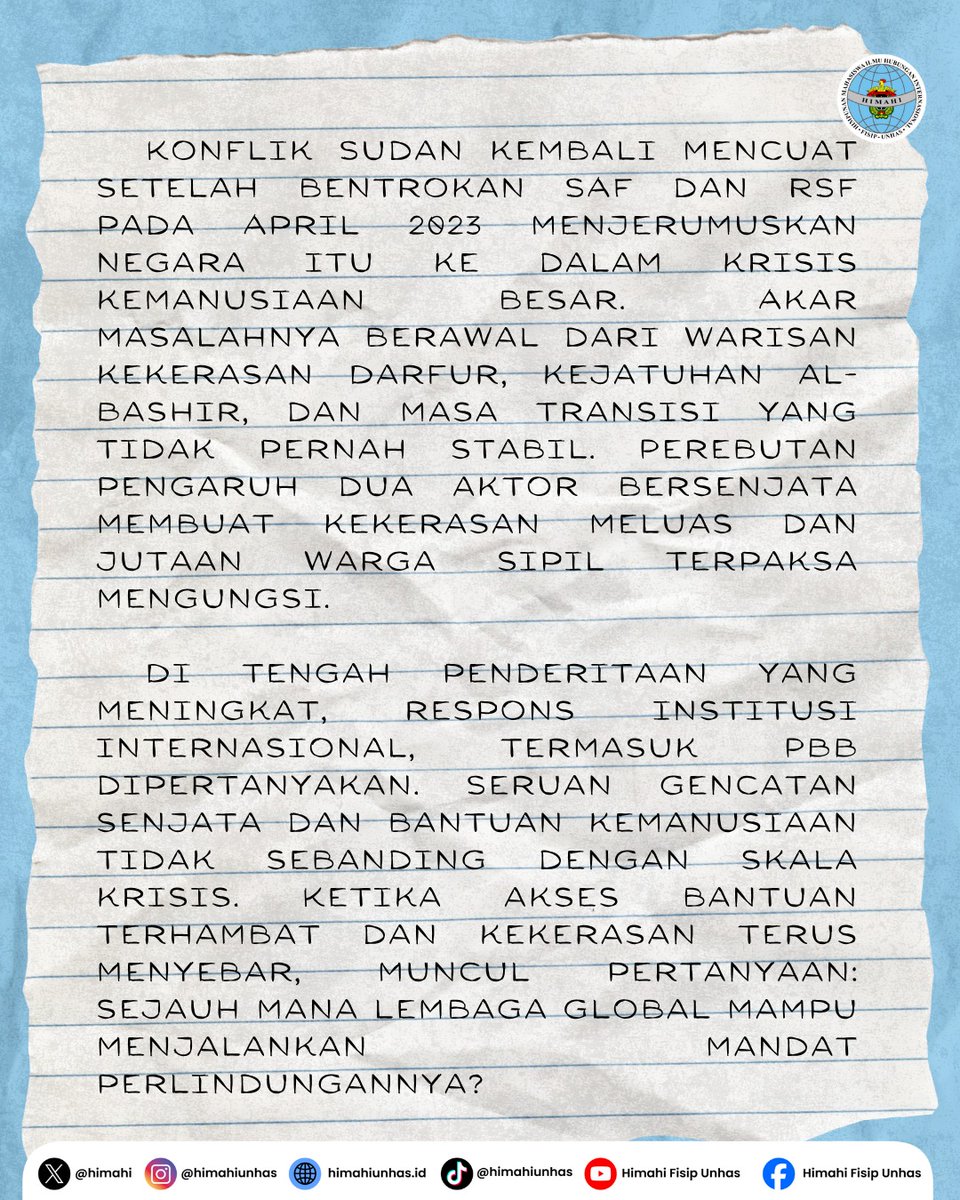 HIMPUNAN MAHASISWA ILMU HUBUNGAN INTERNASIONAL
HIMAHI
FISIP - UNHAS
KONFLIK SUDAN KEMBALI MENCUAT
SETELAH BENTROKAN SAF DAN RSF
PADA APRIL 2023 MENJERUMUSKAN
NEGARA ITU KE DALAM KRISIS
KEMANUSIAAN BESAR. AKAR
MASALAHNYA BERAWAL DARI WARISAN
KEKERASAN DARFUR, KEJATUHAN AL-
BASHIR, DAN MASA TRANSISI YANG
TIDAK PERNAH STABIL. PEREBUTAN
PENGARUH DUA AKTOR BERSENJATA
MEMBUAT KEKERASAN MELUAS DAN
JUTAAN WARGA SIPIL TERPAKSA
MENGUNGSI.
DI TENGAH PENDERITAAN YANG
MENINGKAT, RESPONS INSTITUSI
INTERNASIONAL, TERMASUK PBB
DIPERTANYAKAN. SERUAN GENCATAN
SENJATA DAN BANTUAN KEMANUSIAAN
TIDAK SEBANDING DENGAN SKALA
KRISIS. KETIKA AKSES BANTUAN
TERHAMBAT DAN KEKERASAN TERUS
MENYEBAR, MUNCUL PERTANYAAN:
SEJAUH MANA LEMBAGA GLOBAL MAMPU
MENJALANKAN MANDAT
PERLINDUNGANNYA?
@himahi @himahiunhas himahiunhas.id @himahiunhas Himahi Fisip Unhas Himahi Fisip Unhas